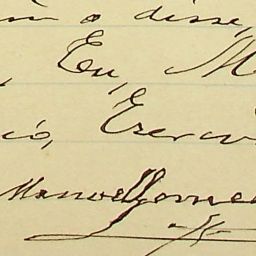 o disse,
, Eu, M
ió, Escriv
Manoel Gomes